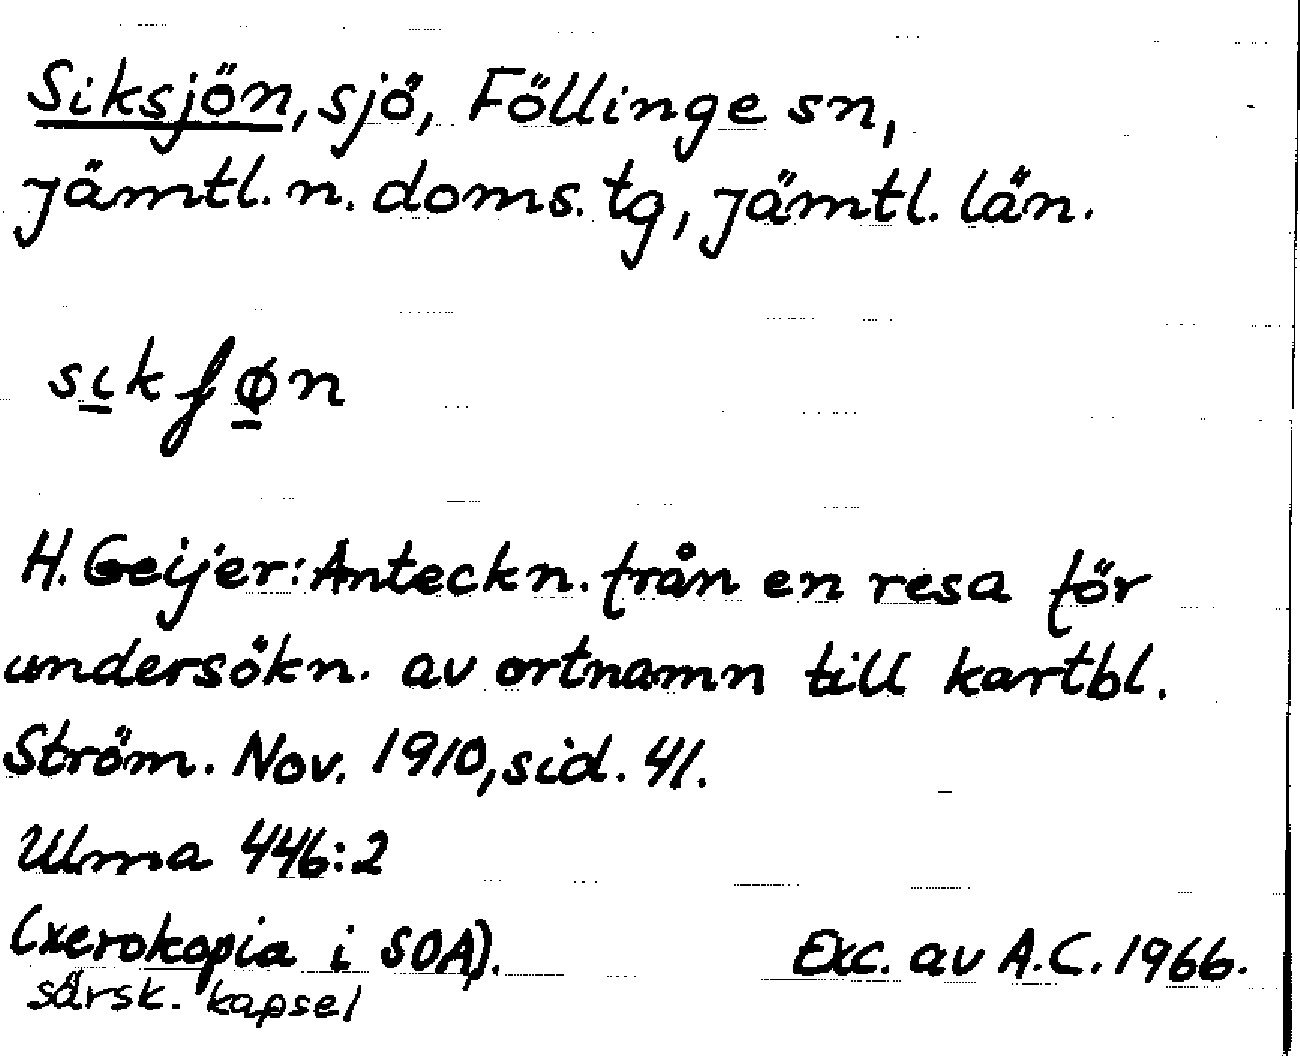 Siksjön, sjö, Föllinge sn,
Jämtl. n. doms. tg, Jämtl. län.
sıkʃɸn
H. Geijer: Anteckn. från en resa för
undersökn. av ortnamn till kartbl.
Ström. Nov. 1910, sid. 41.
Ulma 446:2
(xerokopia i SOA). Exc. av A.C. 1966.
särsk. kapsel